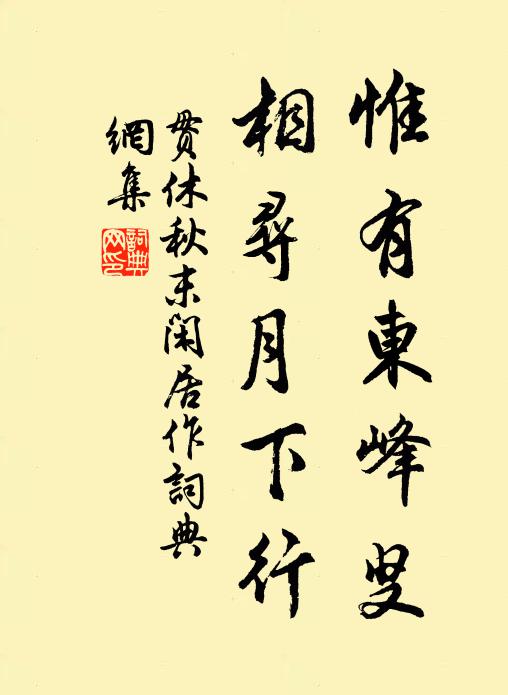 惟有東峰叟
相尋月下行
貫休秋末閑居作詞典
網集
詞典
网印